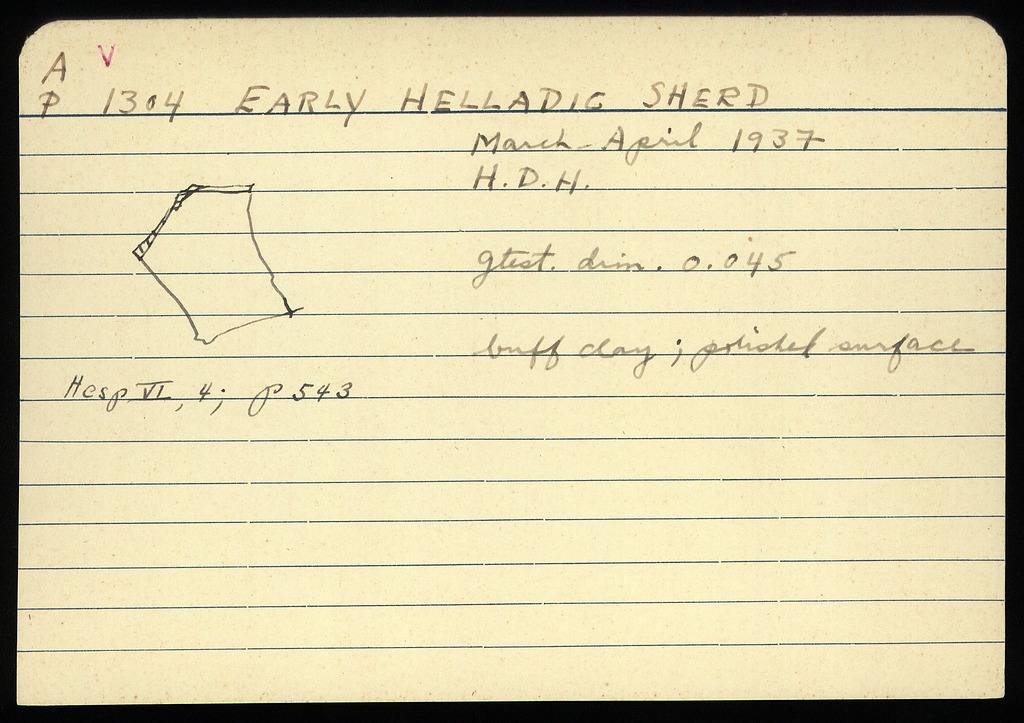 A V
P 1304 EARLY HELLADIC SHERD
March-April 1937
H.D.H.
gtest. dim. 0.045
buff clay; polished surface
Hesp VI, 4; p 543